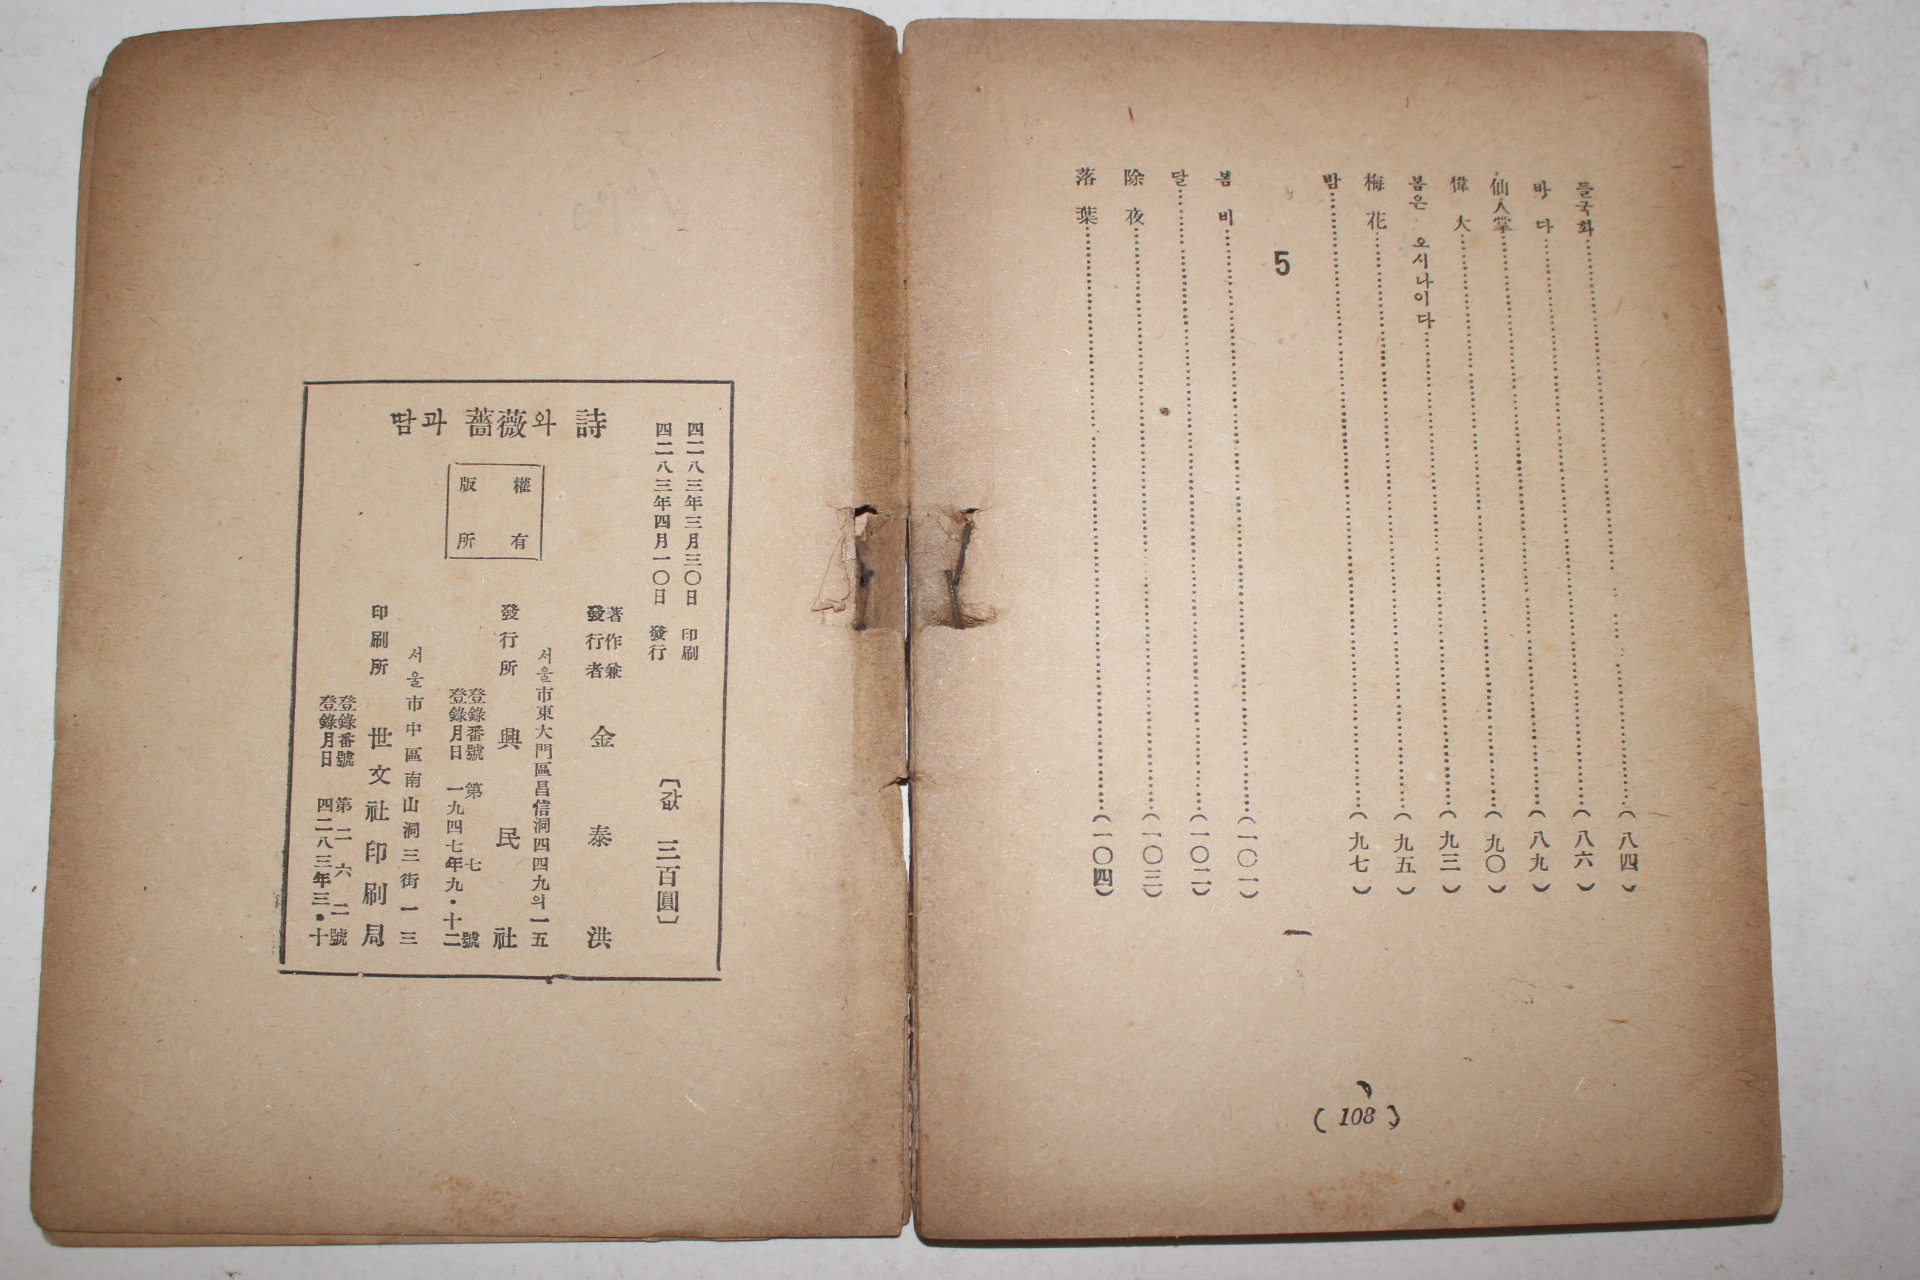 들국화 (八四)
바다 (八六)
仙人掌 (八九)
偉大 (九〇)
봄은 오시나이다 (九三)
梅花 (九五)
밤 (九七)
5
봄비 (一〇一)
달 (一〇二)
除夜 (一〇三)
落葉 (一〇四)
( 108 )
땀과 薔薇와 詩
四二八三年三月三〇日 印刷
四二八三年四月一〇日 發行
[값 三百圓]
著作兼
發行者 金泰洪
서울市東大門區昌信洞四四九의一五
發行所 興民社
登錄番號 第七號
登錄月日 一九四七年九·十二
서울市中區南山洞三街一三
印刷所 世文社印刷局
登錄番號 第二六二號
登錄月日 四二八三年三·十
權有
版所